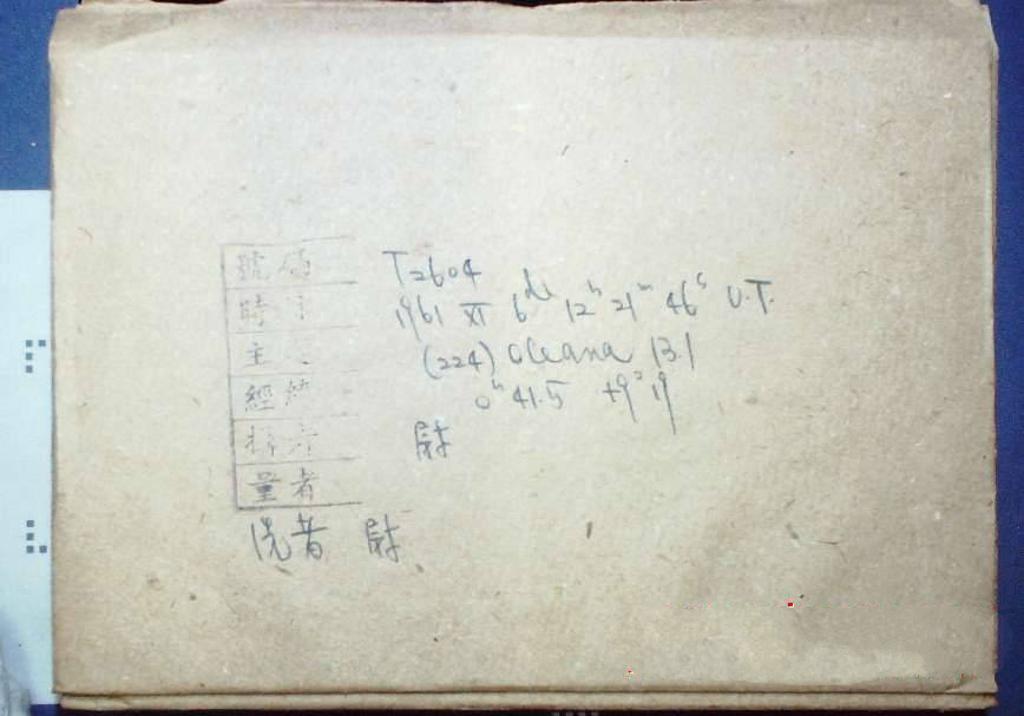 號碼 T2604
時 1961 XI 6d 12h 21m 46s U.T.
主 (224) Oceana 13.1
經緯 0h 41.5 +9° 19
攝者 尉
量者
洗者 尉